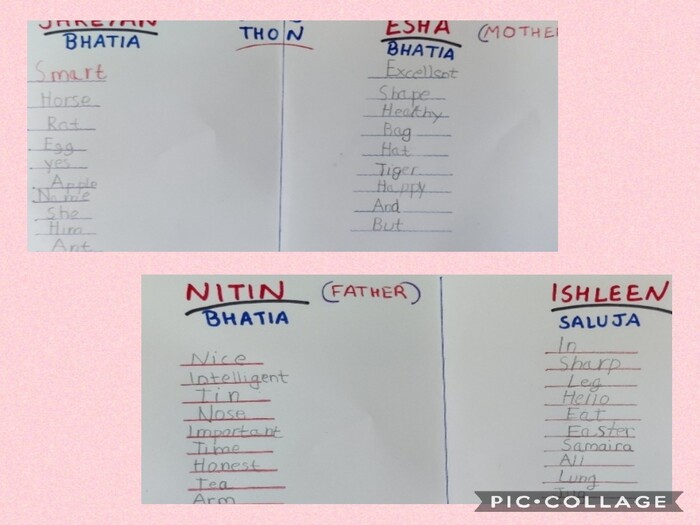 BHATIA
Smart
Horse
Rat
Egg
yes
Apple
Name
She
Him
Ant
THON
ESHA (MOTHE
BHATIA
Excellent
Shape
Healthy
Bag
Hat
Tiger
Happy
And
But
NITIN (FATHER)
BHATIA
Nice
Intelligent
Tin
Nose
Important
Time
Honest
Tea
Arm
ISHLEEN
SALUJA
In
Sharp
Leg
Hello
Eat
Easter
Samaira
All
Lung
PIC•COLLAGE